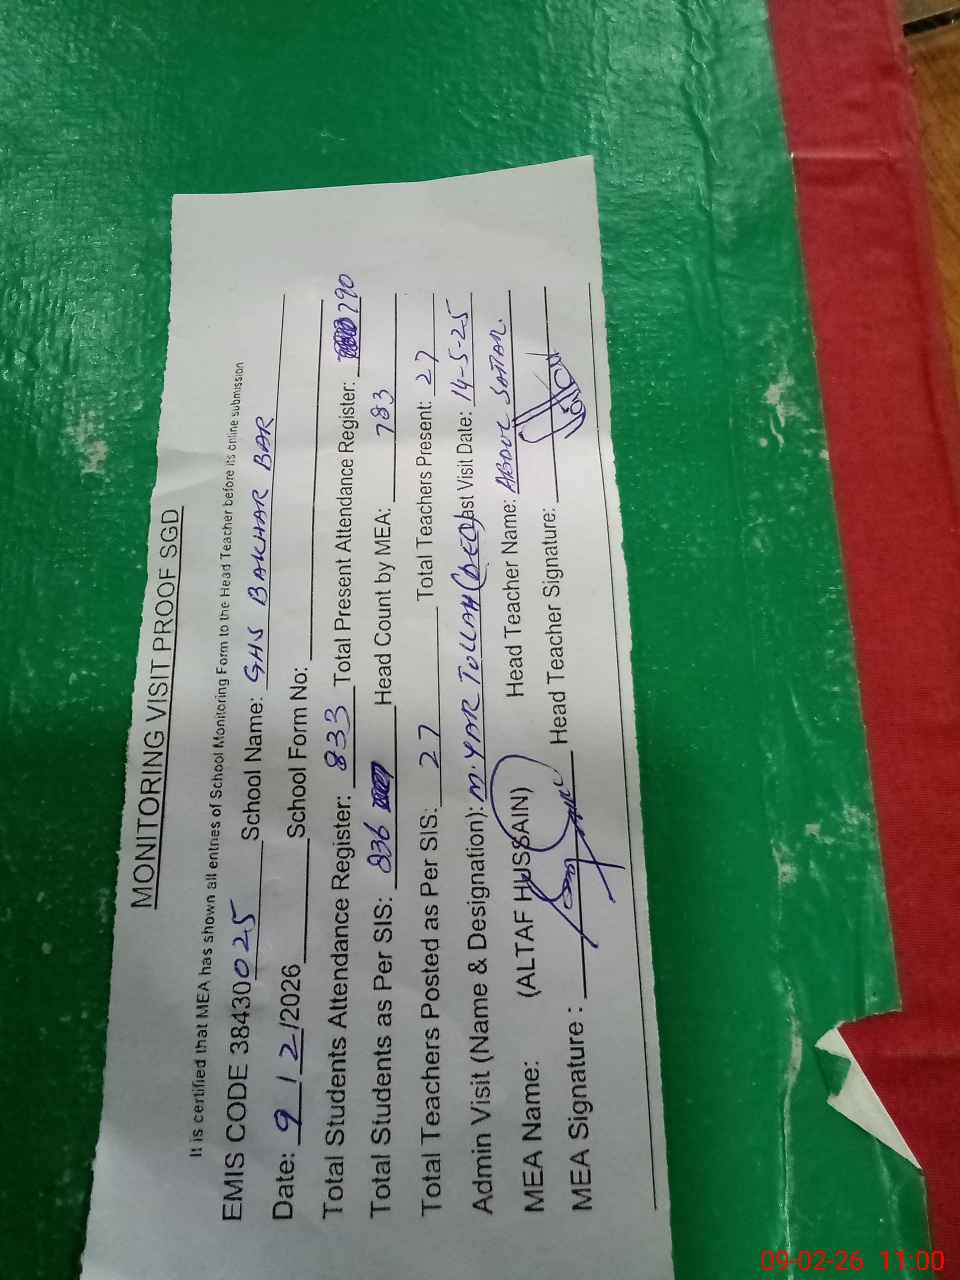 MONITORING VISIT PROOF SGD
It is certified that MEA has shown all entries of School Monitoring Form to the Head Teacher before its online submission
EMIS CODE 38430025 School Name: GHS BAKHAR BAR
Date: 9/2/2026 School Form No:
Total Students Attendance Register: 833 Total Present Attendance Register: 790
Total Students as Per SIS: 836 Head Count by MEA: 783
Total Teachers Posted as Per SIS: 27 Total Teachers Present: 27
Admin Visit (Name & Designation): M. YAR TULLAH (DEO) Last Visit Date: 14-5-25
MEA Name: (ALTAF HUSSAIN) Head Teacher Name: ABDUL SATTAR.
MEA Signature : Head Teacher Signature:
09-02-26 11:00